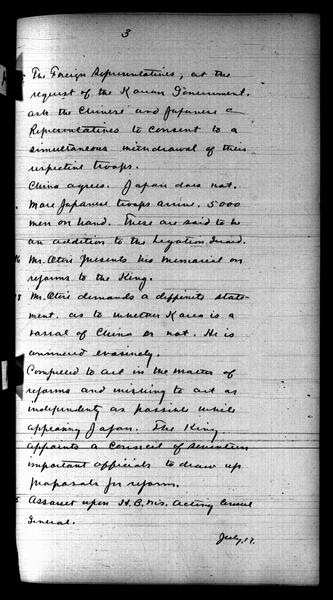 3
The Foreign Representatives, at the
request of the Korean Government,
ask the Chinese and Japanese
Representatives to consent to a
simultaneous withdrawal of their
respective troops.
China agrees. Japan does not.
More Japanese troops arrive. 5000
men on hand. These are said to be
an addition to the Legation Guard.
Mr. Otori presents his memorial on
reforms to the King.
Mr. Otori demands a definite state-
ment as to whether Korea is a
vassal of China or not. He is
answered evasively.
Compelled to act in the matter of
reforms and wishing to act as
independently as possible while
appeasing Japan. The King
appoints a Council of seventeen
important officials to draw up
proposals for reform.
Assault upon H.B.M's. Acting Consul
General.
July, 17.